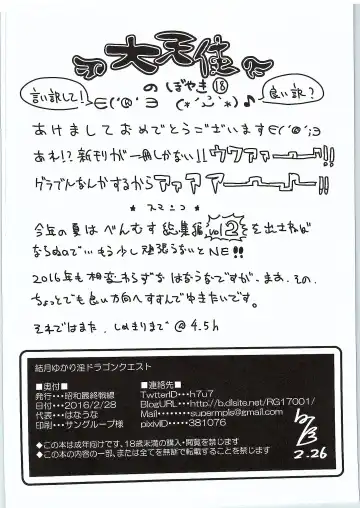 大天使
のぼやき⑱
言い訳して!
∈(´@`∋ (*´ー`*)♪
良い訳?
あけましておめでとうございます∈(´@`;∋
あれ!?新刊が一冊しかない!!ウワァァーー!!
グラブルなんかするからァァァーー!!
今年の夏はべんむす総集編vol2をを出さねば
ならぬので…もう少し頑張らないとNE!!
2016年も相変わらずなはなうなですが、まぁ、その、
ちょっとでも良い方向へすすんでゆきたいです。
それではまた、しめきりまで@4.5h
結月ゆかり淫ドラゴンクエスト
■奥付■
発行・・・昭和最終戦線
日付・・・2016/2/28
代表・・・はなうな
印刷・・・サングループ様
■連絡先■
TwtterID・・・h7u7
BlogURL・・・http://b.dlsite.net/RG17001/
Mail・・・・・・・・supermpls@gmail.com
pixivID・・・・・381076
◆この本は成年向けです、18歳未満の購入・閲覧を禁じます
◆この本の内容の一部、または全てを無断で転載することを禁じます
2.26